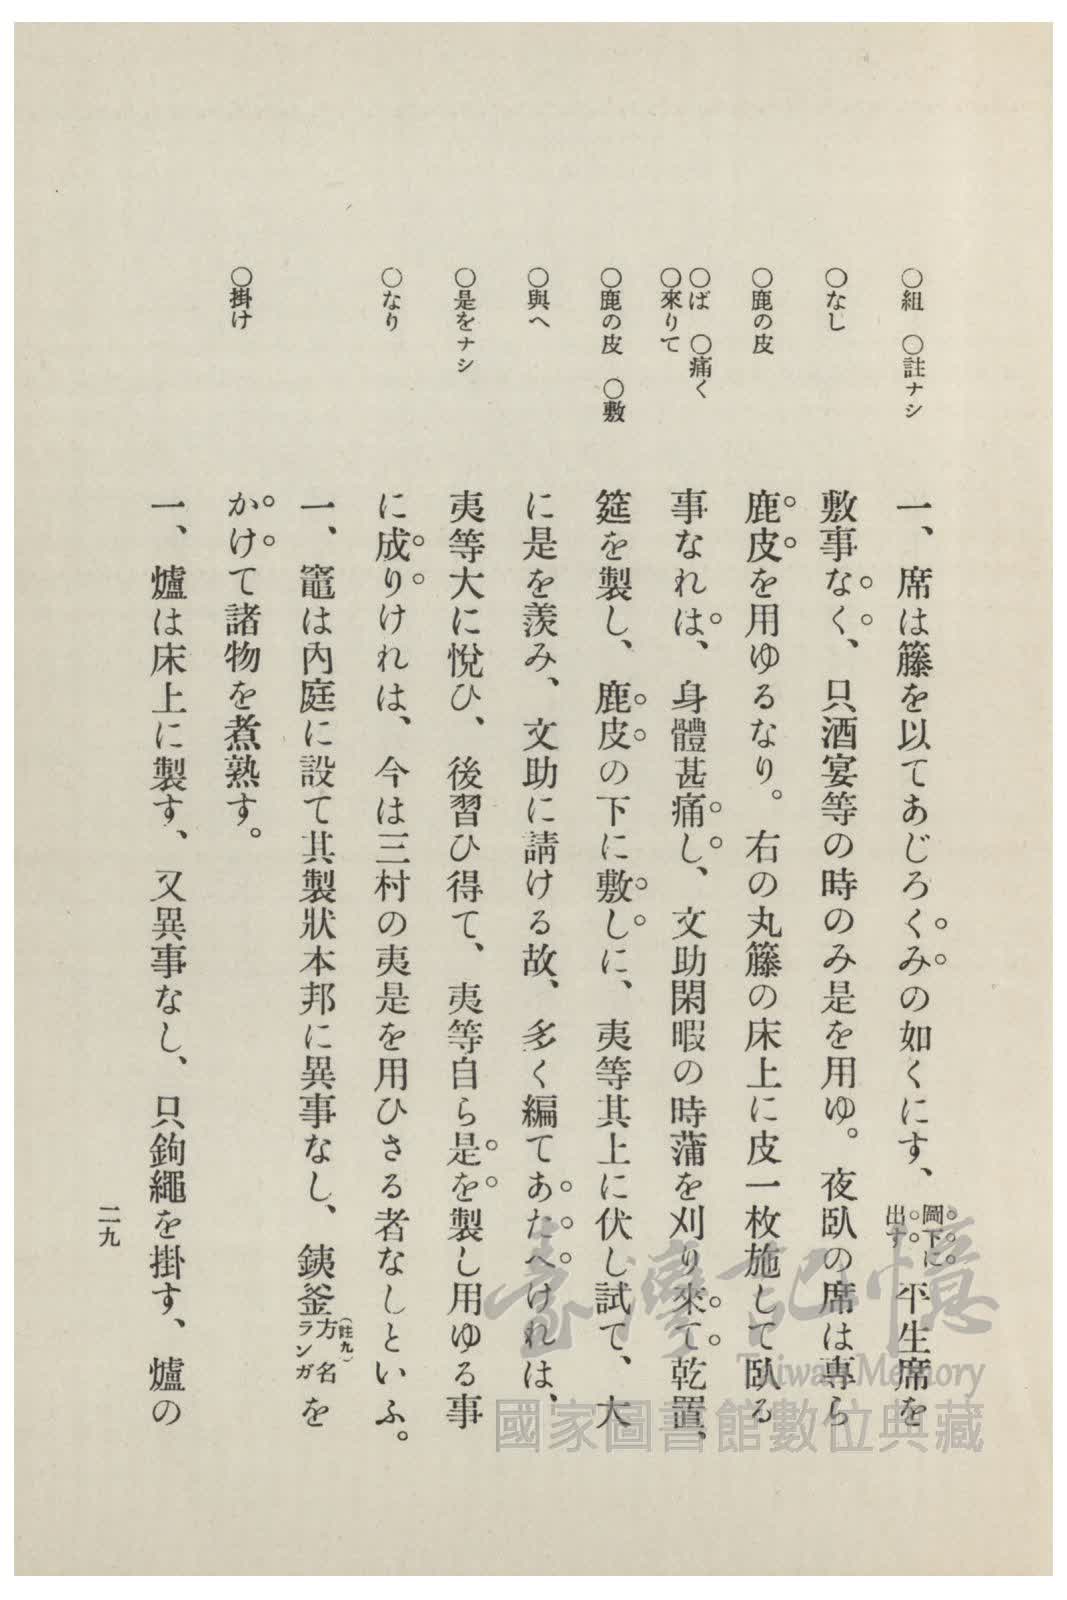 〇組　〇註ナシ
〇なし
〇鹿の皮
〇ば　〇痛く
〇來りて
〇鹿の皮　〇敷
〇與へ
〇是をナシ
〇なり
〇掛け
一、席は籐を以てあじろくみの如くにす、圖下に出す平生席を
敷事なく、只酒宴等の時のみ是を用ゆ。夜臥の席は專ら
鹿皮を用ゆるなり。右の丸籐の床上に皮一枚施して臥る
事なれは、身體甚痛し、文助閑暇の時蒲を刈り來て乾置、
筵を製し、鹿皮の下に敷しに、夷等其上に伏し試て、大
に是を羨み、文助に請ける故、多く編てあたへけれは、
夷等大に悅ひ、後習ひ得て、夷等自ら是を製し用ゆる事
に成りけれは、今は三村の夷是を用ひさる者なしといふ。
一、竈は內庭に設て其製狀本邦に異事なし、銕釜（註九）方名ランガを
かけて諸物を煮熟す。
一、爐は床上に製す、又異事なし、只鉤繩を掛す、爐の
二九
臺灣記憶
Taiwan Memory
國家圖書館數位典藏